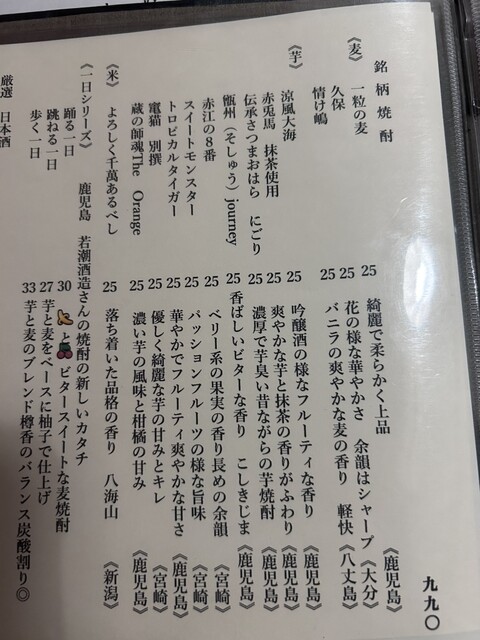 銘柄焼酎 九九〇
《麦》 一粒の麦 25 綺麗で柔らかく上品 《鹿児島》
久保 25 花の様な華やかさ 余韻はシャープ 《大分》
情け嶋 25 バニラの爽やかな麦の香り 軽快 《八丈島》
《芋》 涼風大海 25 吟醸酒の様なフルーティな香り 《鹿児島》
赤兎馬 抹茶使用 25 爽やかな芋と抹茶の香りがふわり 《鹿児島》
伝承さつまおはら にごり 25 濃厚で芋臭い昔ながらの芋焼酎 《鹿児島》
甑州（そしゅう）journey 25 香ばしいビターな香り こしきじま 《鹿児島》
赤江の8番 25 ベリー系の果実の香り長めの余韻 《宮崎》
スイートモンスター 25 パッションフルーツの様な旨味 《宮崎》
トロピカルタイガー 25 華やかでフルーティ爽やかな甘さ 《鹿児島》
竃猫 別撰 25 優しく綺麗な芋の甘みとキレ 《宮崎》
蔵の師魂The Orange 25 濃い芋の風味と柑橘の甘み 《鹿児島》
《米》 よろしく千萬あるべし 25 落ち着いた品格の香り 八海山 《新潟》
《一日シリーズ》 鹿児島 若潮酒造さんの焼酎の新しいカタチ
踊る一日 30 🍋と🍒ビタースイートな麦焼酎
跳ねる一日 27 芋と麦をベースに柚子で仕上げ
歩く一日 33 芋と麦のブレンド樽香のバランス炭酸割り◎
厳選 日本酒